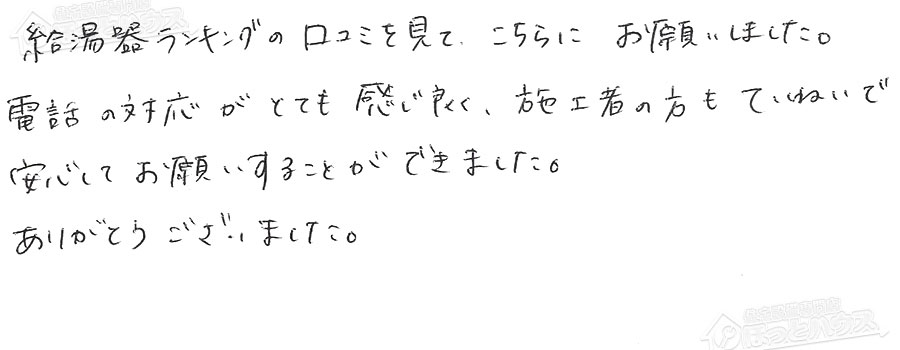 給湯器ランキングの口コミを見て、こちらに お願いしました。
電話の対応がとても感じ良く、施工者の方もていねいで
安心してお願いすることができました。
ありがとうございました。
ほっとハウス